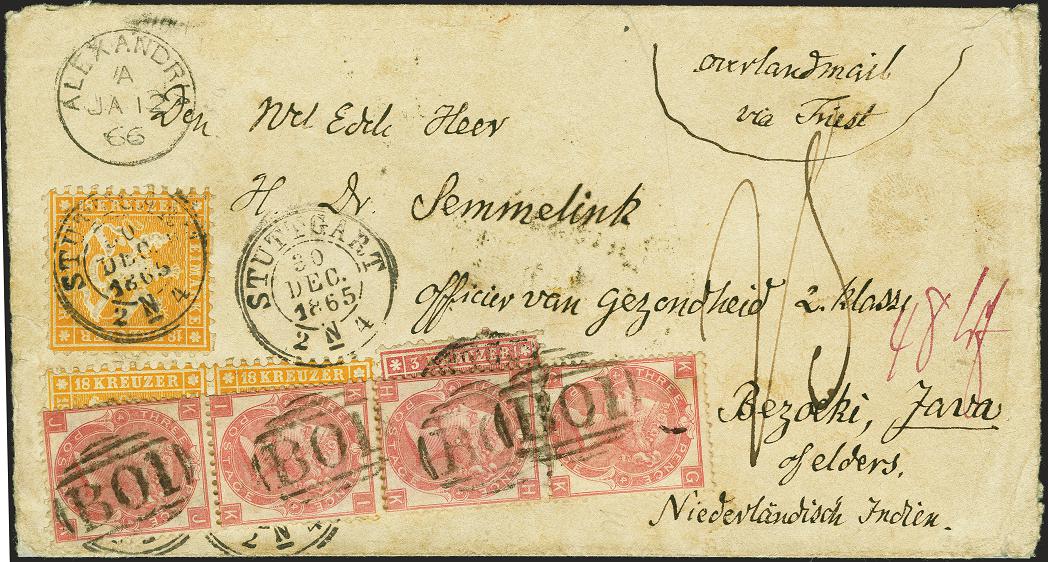 ALEXANDRIA
A
JA 12
66
overlandmail
via Triest
Den Wel Edele Heer
H. Dr. Semmelink
Officier van gezondheid 2. klasse
48 kr
Bezoeki, Java
of elders.
Niederländisch Indien.
STUTTGART
30
DEC.
1865
2 N 4
STUTTGART
30
DEC.
1865
2 N 4
18 KREUZER
18 KREUZER
3 KREUZER
J K
POSTAGE
THREE PENCE
K J
B01
I K
POSTAGE
THREE PENCE
K I
B01
H K
POSTAGE
K H
B01
THREE PENCE
K G
B01
2 N 4